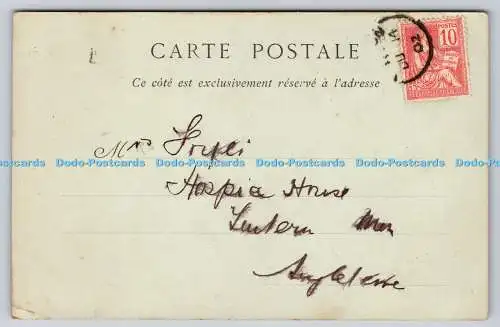 CARTE POSTALE
Ce côté est exclusivement réservé à l'adresse
10
02
Mrs
Dodo-Postcards Dodo-Postcards Dodo-Postcards Dodo-Postcards Dodo-Postcards
Hospice House
Angleterre